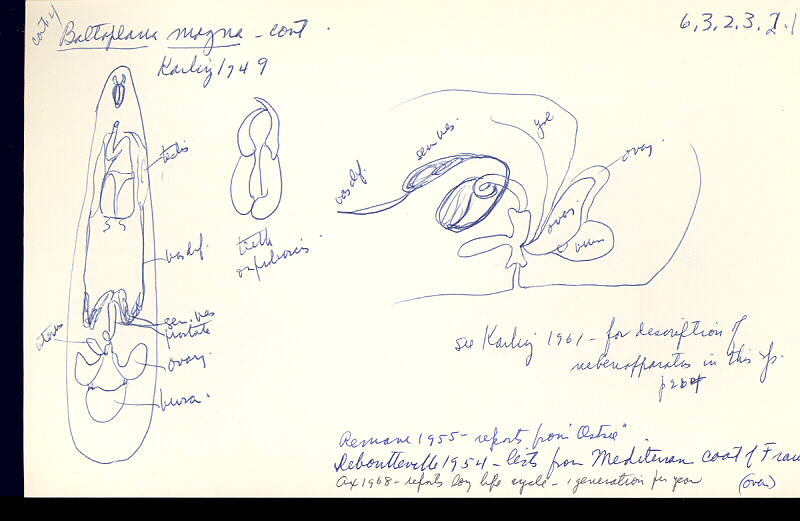 cont'd
Baltoplana magna - cont.
6.3.2.3.2.1
Karling 1949
testis
vas def.
sem. ves
prostate
uterus
ovary
bursa.
teeth
on proboscis
vas def.
sem. ves.
yol
ovary.
ovar.
see Karling 1961 - for description of
nebenapparatus in this sp.
Remane 1955 - reports from "Ostsee"
Deboutteville 1954 - lists from Mediterran coast of Fran
Ax 1968 - reports long life cycle - 1 generation per year
(over)